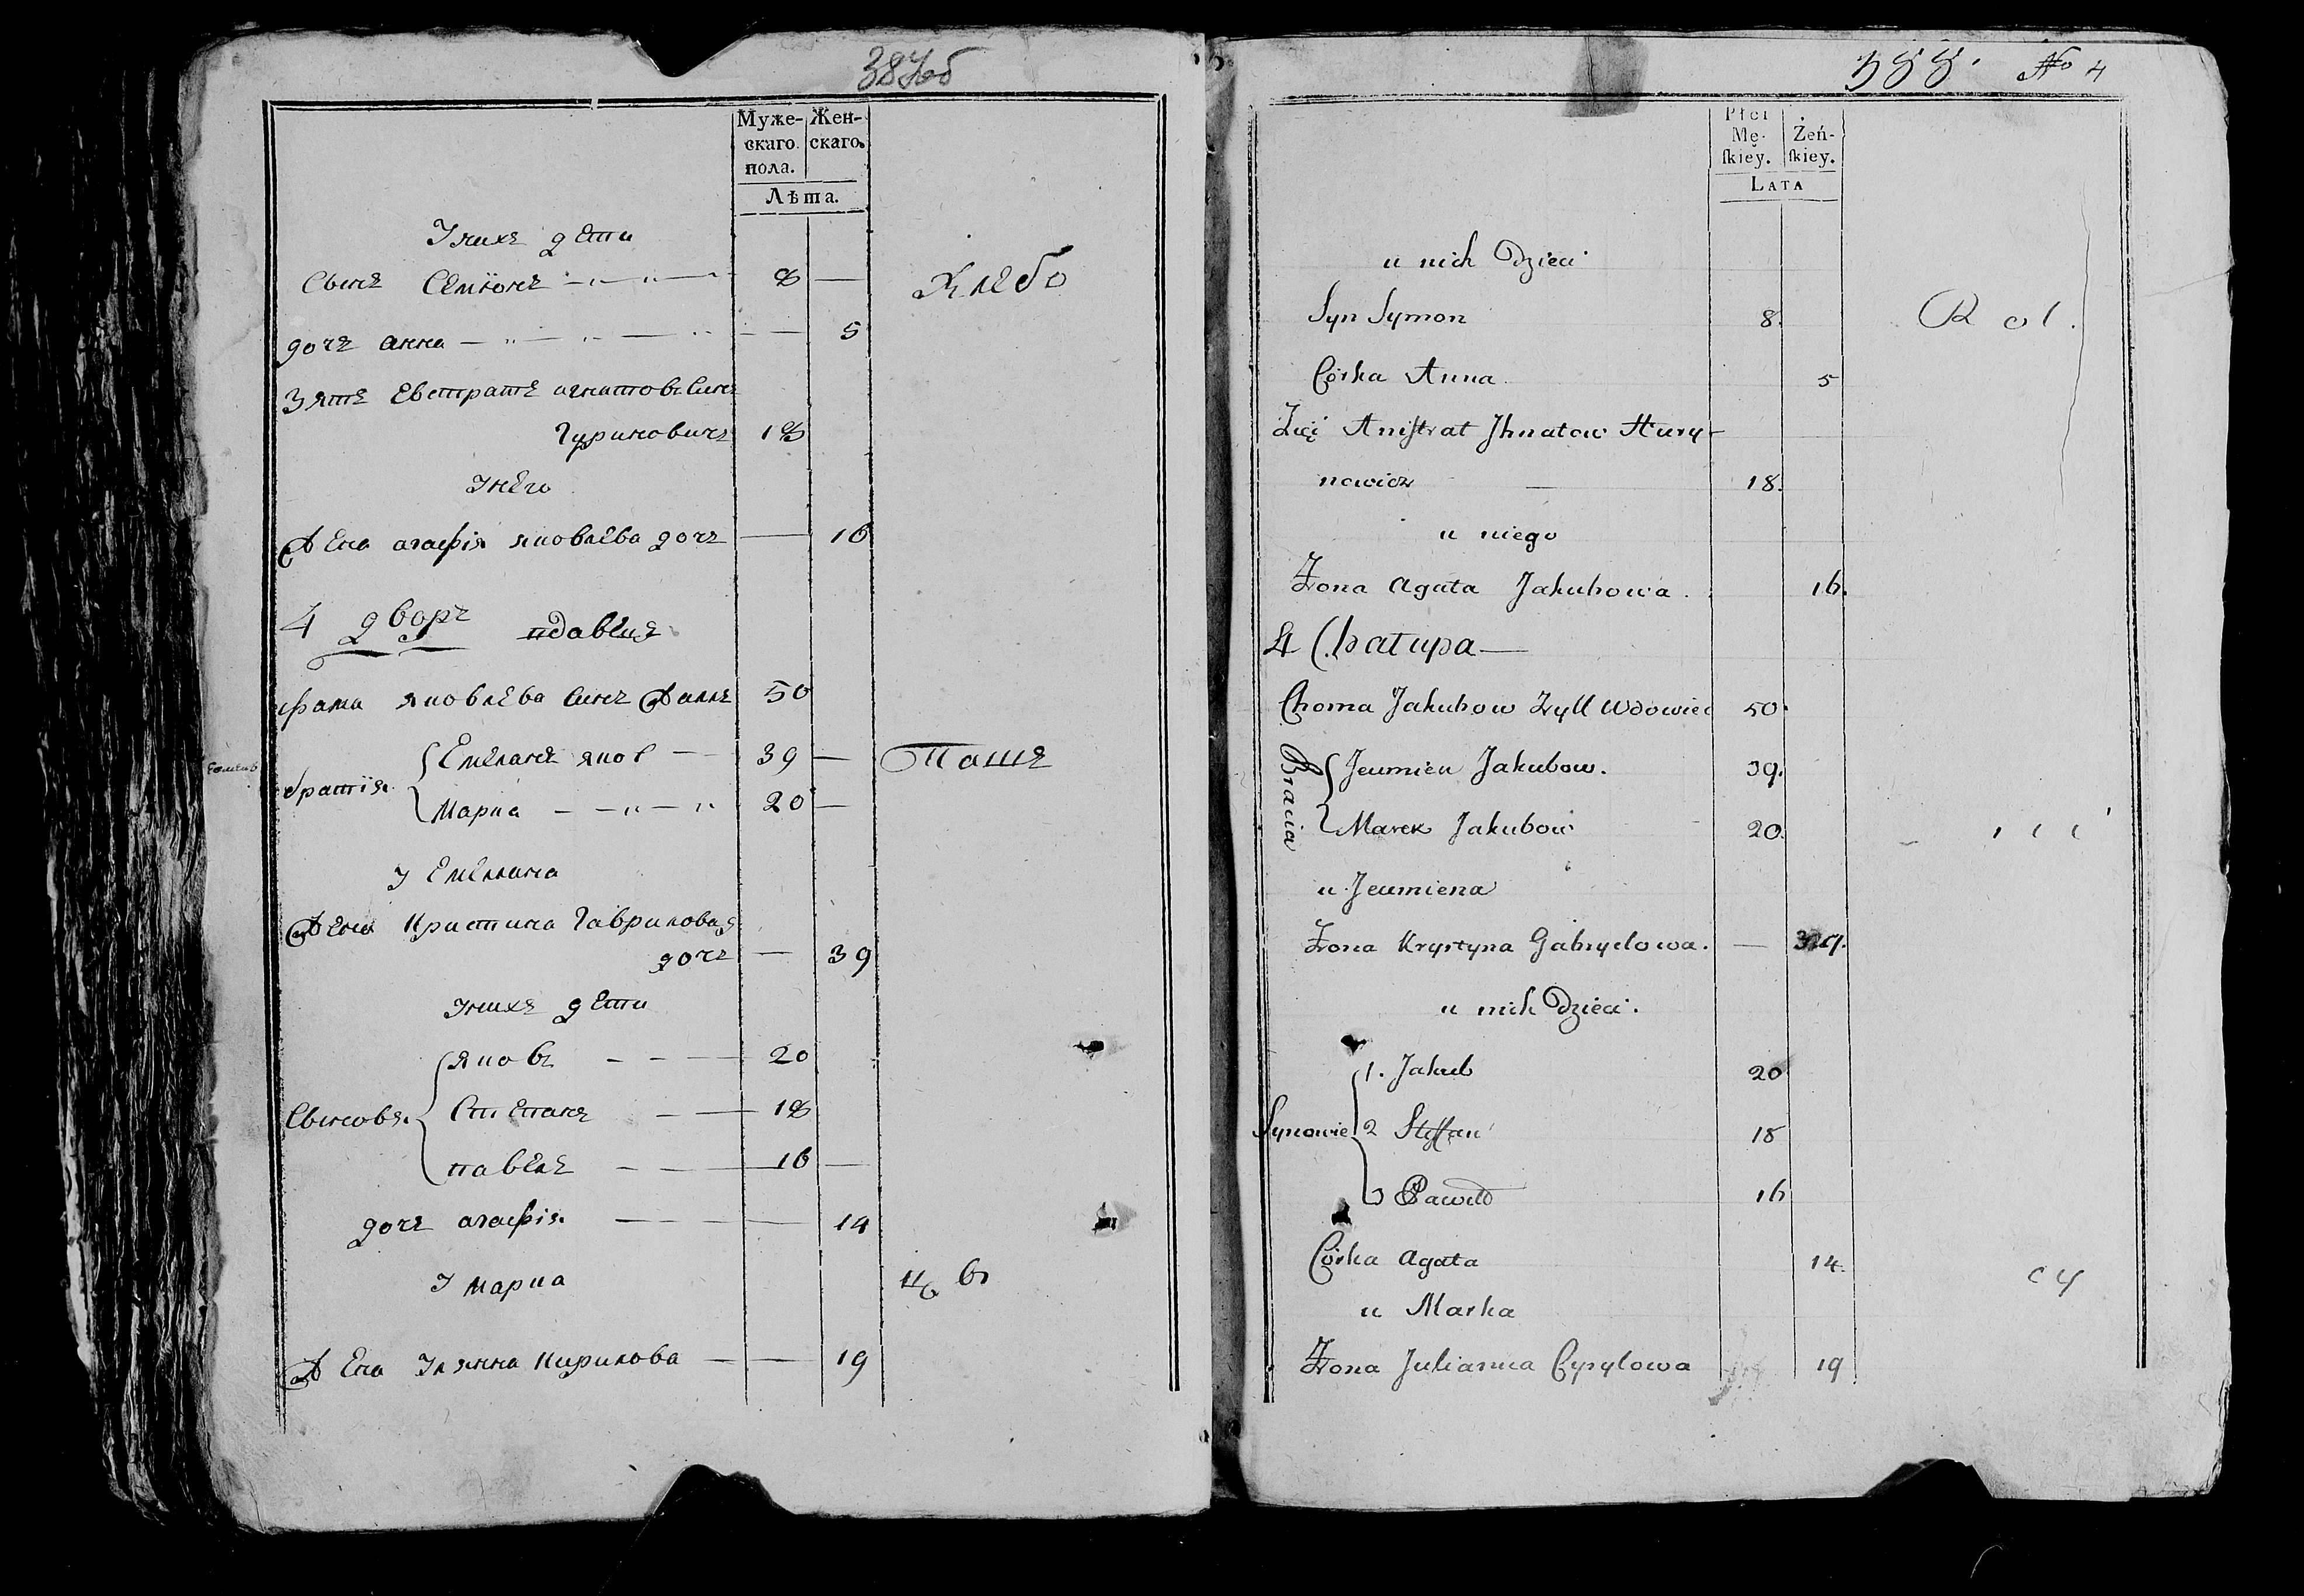 387об
Муже-
скаго
пола.
Жен-
скаго.
Лѣта.
У нихъ дети
Сынъ Семіонъ 8 —
дочъ Анна — 5
Зять Евстратъ Игнатовъ Синъ
Гуриновичъ 18
У него
Жена Агафія Яковлева дочъ — 16
Хлебо
4 дворъ вдавецъ
Фама Яковлева Синъ Жилъ 50
братія
Емелянъ Яков — 39 —
Марка 20 —
Паше
У Емеляна
Жена Кристина Гавриловая
дочъ — 39
У нихъ дети
Сыновя
Яковъ 20
Степанъ 18
Павелъ 16 —
дочъ Агафія — 14
У Марка
Жена Улянна Кирилова — 19
цъ
388. No 4
Płci
Mę-
ſkiey.
Żeń-
ſkiey.
Lata
u nich Dzieci
Syn Symon 8.
Córka Anna 5
Zięć Anistrat Jhnatow Hury-
nowicz — 18.
u niego
Żona Agata Jakubowa. 16.
Rol.
4 Chatupa —
Choma Jakubow Żyll Wdowiec 50.
Bracia
Jeumien Jakubow. 39.
Marek Jakubow 20.
u Jeumiena
Żona Krystyna Gabryelowa. — 39.
u nich Dzieci.
Synowie
1. Jakub 20
2 Steffan 18
3 Paweł 16
Córka Agata 14.
u Marka
Żona Julianna Cyrylowa 19
cy